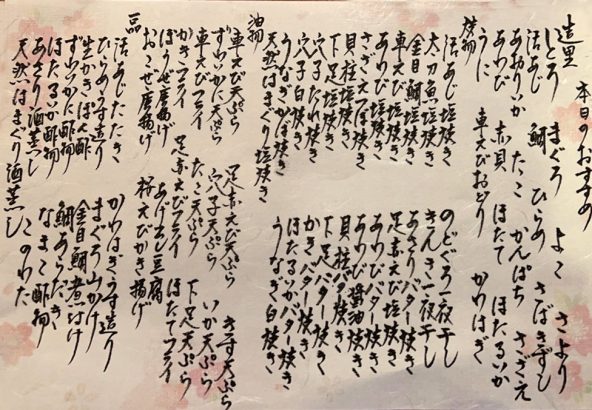 本日のおすすめ
造里
しとろ まぐろ よこ さより
活あじ 鯛 ひらめ さばきずし
あおりいか たこ かんぱち さざえ
あわび 赤貝 ほたて ほたるいか
うに 車えびおどり かわはぎ
焼物
活あじ塩焼き のどぐろ一夜干し
太刀魚塩焼き きんき一夜干し
金目鯛塩焼き あさりバター焼き
車えび塩焼き 足赤えび塩焼き
あわび塩焼き あわびバター焼き
さざえつぼ焼き あわび醤油焼き
貝柱塩焼き 貝柱バター焼き
下足塩焼き 下足バター焼き
穴子たれ焼き かきバター焼き
穴子白焼き ほたるいかバター焼き
うなぎかば焼き うなぎ白焼き
天然はまぐり塩焼き
油物
車えび天ぷら 足赤えび天ぷら きす天ぷら
ずわいかに天ぷら 穴子天ぷら いか天ぷら
車えびフライ たこ天ぷら 下足天ぷら
かきフライ 足赤えびフライ ほたてフライ
ほうぼ唐揚げ あげだし豆腐
おこぜ唐揚げ 桜えびかき揚げ
一品
活あじたたき かわはぎうす造り
ひらめうす造り まぐろ山かけ
生かきぽん酢 金目鯛煮付け
ずわいかに酢物 鯛あらだき
ほたるいか酢物 なまこ酢物
あさり酒蒸し このわた
天然はまぐり酒蒸し